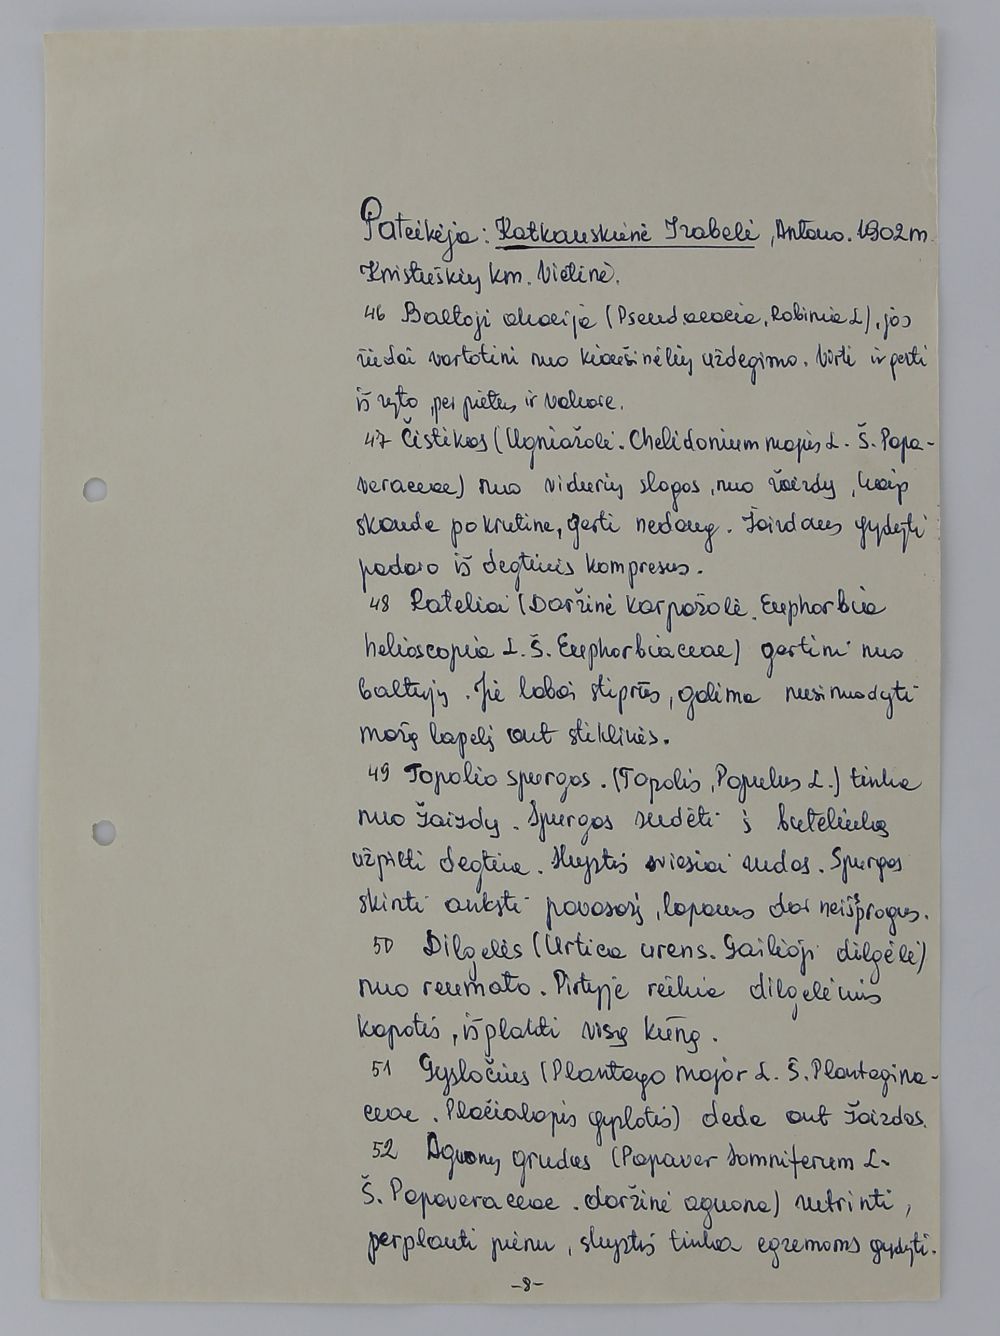 Pateikėja: Katkauskienė Izabelė, Antano. 1902 m.
Kristuškių km. Vietinė.
46 Baltoji akacija (Pseudacacia, Robinia L), jos
žiedai vartotini nuo kiaušinėlių uždegimo. Virti ir gerti
iš ryto, per pietus ir vakare.
47 Čistikas (Ugniažolė. Chelidonium majus L. Š. Papa-
veraceae) nuo vidurių slogos, nuo žaizdų, kaip
skauda po krutine, gerti nedaug. Žaizdaus gydyti
padaro iš degtinės kompresus.
48 Rateliai (Daržinė karpažolė. Euphorbia
helioscopia L. Š. Euphorbiaceae) gertini nuo
baltųjų. Jie labai stiprūs, galima nusinuodyti
mažą lapelį ant stiklinės.
49 Topolio spurgos. (Topolis, Populus L.) tinka
nuo žaizdų. Spurgas sudėti į buteliuką
užpilti degtine. Skystis šviesiai rudas. Spurgas
skinti anksti pavasarį, lapams dar neišsprogus.
50 Dilgelės (Urtica urens. Gailioji dilgėlė)
nuo reumato. Pirtyje reikia dilgelėmis
kapotis, išplakti visą kūną.
51 Gysločius (Plantago major L. Š. Plantagina-
ceae. Plačialapis gyslotis) deda ant žaizdos.
52 Aguonų grudus (Papaver somniferum L.
Š. Papaveraceae. daržinė aguona) sutrinti,
perplauti pienu, skystis tinka egzemoms gydyti.
-8-